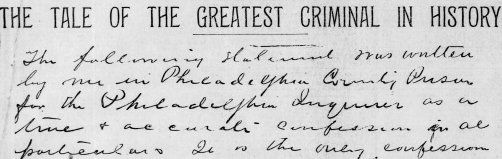 THE TALE OF THE GREATEST CRIMINAL IN HISTORY
The following statement was written
by me in Philadelphia County Prison
for the Philadelphia Inquirer as a
true & accurate confession in al
particulars It is the only confession